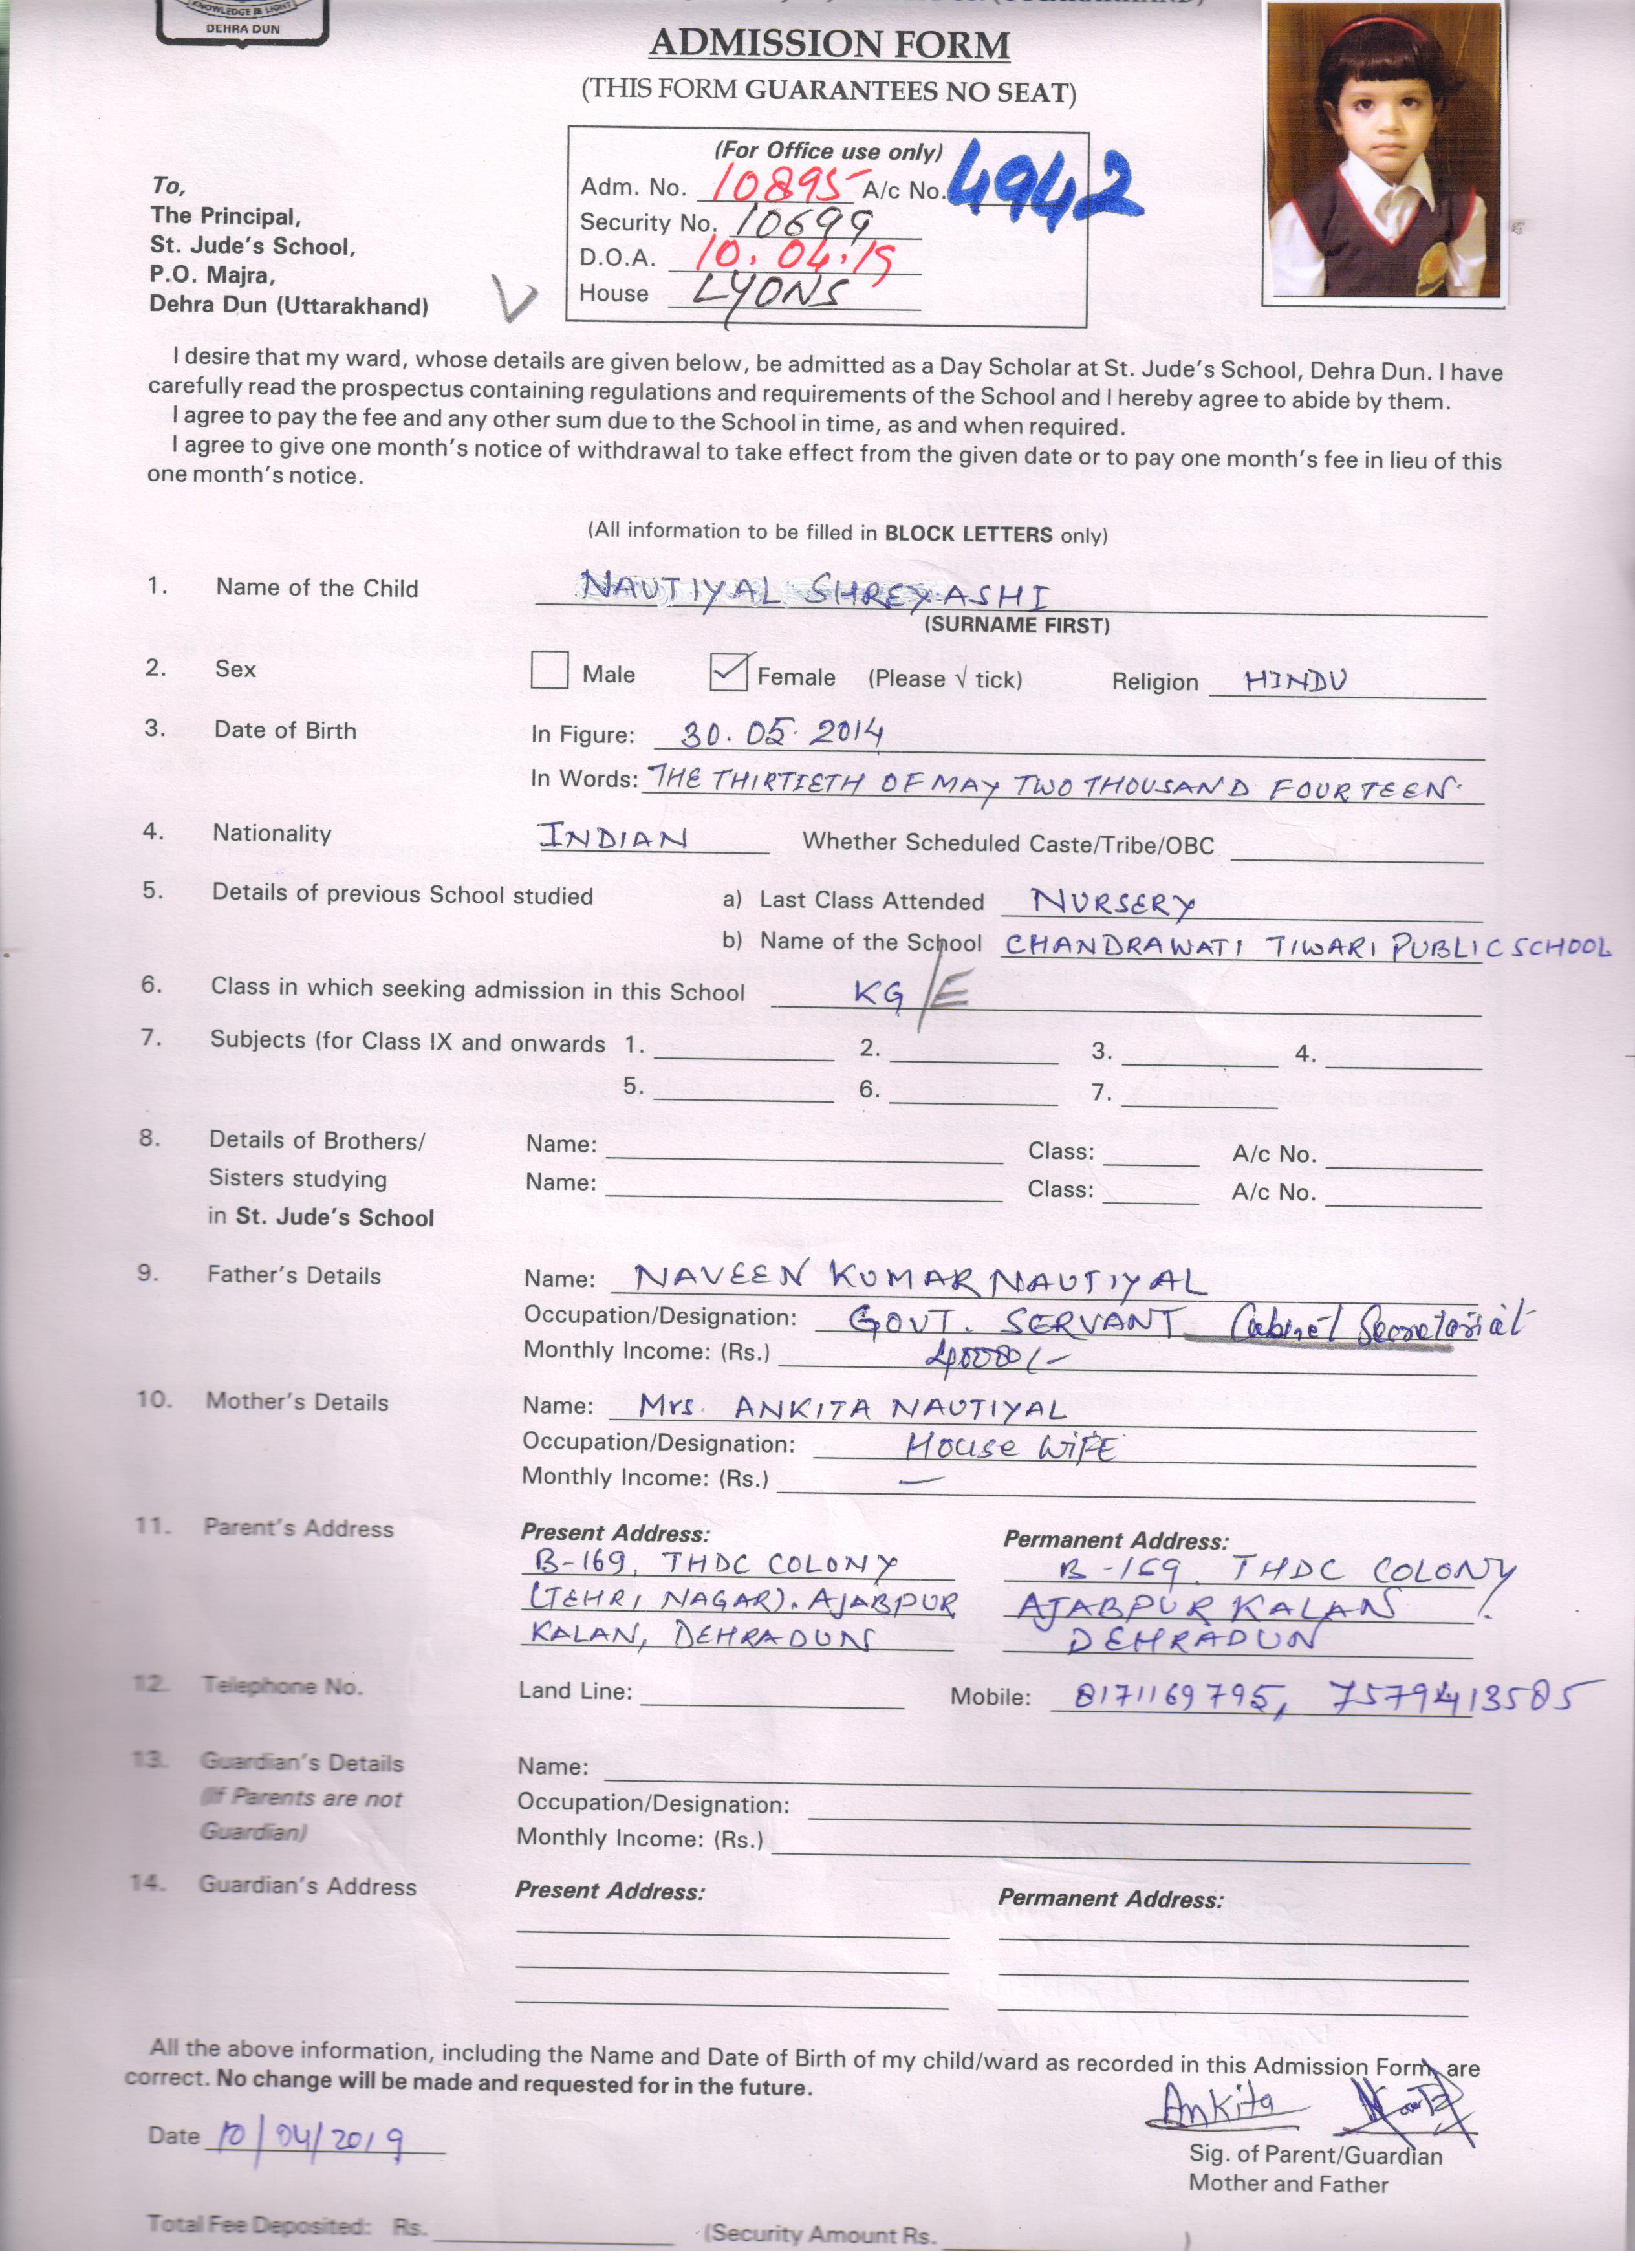 KNOWLEDGE IS LIGHT
DEHRA DUN
ADMISSION FORM
(THIS FORM GUARANTEES NO SEAT)
(For Office use only)
Adm. No. 10895 A/c No. 4942
Security No. 10699
D.O.A. 10.04.19
House LYONS
To,
The Principal,
St. Jude's School,
P.O. Majra,
Dehra Dun (Uttarakhand)
I desire that my ward, whose details are given below, be admitted as a Day Scholar at St. Jude's School, Dehra Dun. I have
carefully read the prospectus containing regulations and requirements of the School and I hereby agree to abide by them.
I agree to pay the fee and any other sum due to the School in time, as and when required.
I agree to give one month's notice of withdrawal to take effect from the given date or to pay one month's fee in lieu of this
one month's notice.
(All information to be filled in BLOCK LETTERS only)
1. Name of the Child NAUTIYAL SHREYASHI
(SURNAME FIRST)
2. Sex Male Female (Please √ tick) Religion HINDU
3. Date of Birth In Figure: 30.05.2014
In Words: THE THIRTIETH OF MAY TWO THOUSAND FOURTEEN.
4. Nationality INDIAN Whether Scheduled Caste/Tribe/OBC
5. Details of previous School studied a) Last Class Attended NURSERY
b) Name of the School CHANDRAWATI TIWARI PUBLIC SCHOOL
6. Class in which seeking admission in this School KG/E
7. Subjects (for Class IX and onwards 1. 2. 3. 4.
5. 6. 7.
8. Details of Brothers/ Name: Class: A/c No.
Sisters studying Name: Class: A/c No.
in St. Jude's School
9. Father's Details Name: NAVEEN KUMAR NAUTIYAL
Occupation/Designation: GOVT. SERVANT Cabinet Secretariat
Monthly Income: (Rs.) 40000/-
10. Mother's Details Name: Mrs. ANKITA NAUTIYAL
Occupation/Designation: House WiFE
Monthly Income: (Rs.) —
11. Parent's Address Present Address: Permanent Address:
B-169, THDC COLONY B-169. THDC COLONY
(TEHRI NAGAR). AJABPUR AJABPUR KALAN.
KALAN, DEHRADUN DEHRADUN
12. Telephone No. Land Line: Mobile: 8171169795, 7579413585
13. Guardian's Details Name:
(If Parents are not Occupation/Designation:
Guardian) Monthly Income: (Rs.)
14. Guardian's Address Present Address: Permanent Address:
All the above information, including the Name and Date of Birth of my child/ward as recorded in this Admission Form, are
correct. No change will be made and requested for in the future.
Ankita
Date 10/04/2019
Sig. of Parent/Guardian
Mother and Father
Total Fee Deposited: Rs. (Security Amount Rs. )